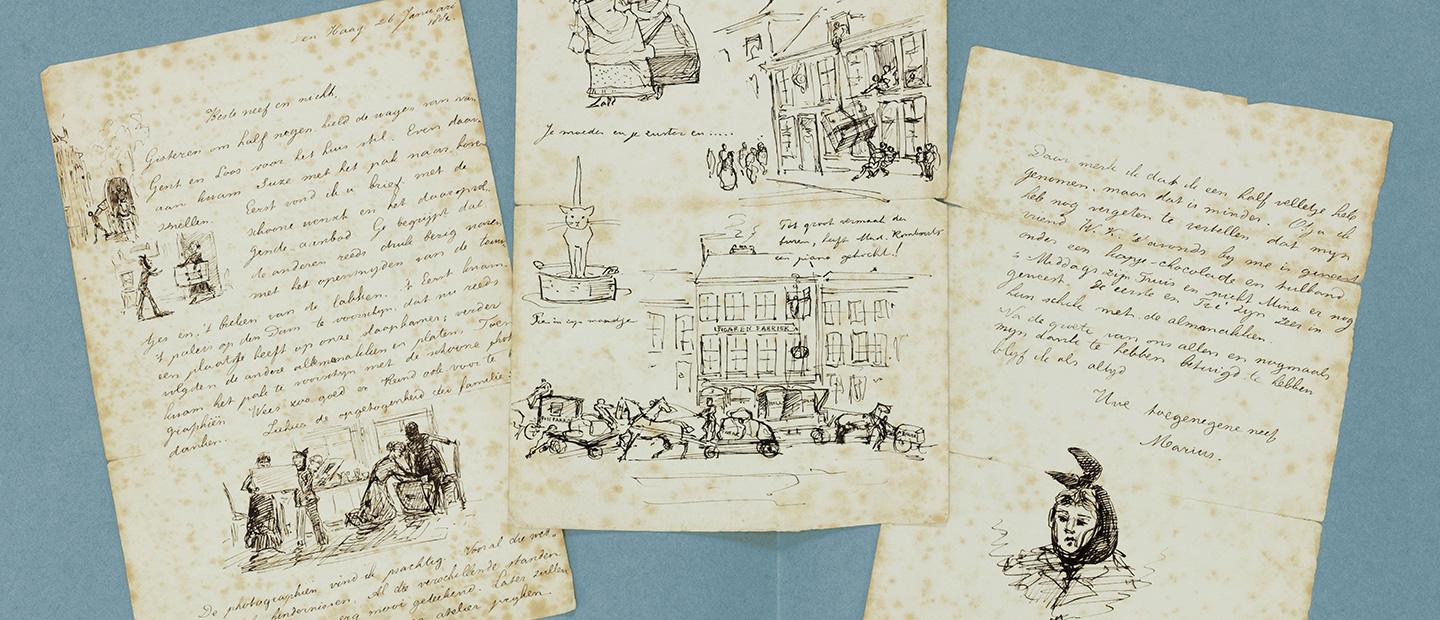 Den Haag. 26 Januari
Beste neef en nicht,
Gisteren om half negen hield de wagen van van
Gent en Loos voor het huis stil. Even daar
aan kwam Suze met het pak naar boven
snellen. Eerst vond ik u brief, met de
schoone wenst en het daaropvol
gende aanbod. Ge begrijpt dat
de anderen reeds druk bezig waren
met het opensnijden van de
tjes en 't breken van de lakken. 't Eerst kwam
't paleis op den Dam te voorschijn, dat nu reeds
een plaatsje heeft op onze slaapkamer; verder
volgden de andere almanakken en platen. Toen
kwam het pak te voorschijn met de schoone phot
graphiën Wees zoo goed er Heind ook voor te
danken. de opgetogenheid der familie
De photographiën vind ik prachtig. Vooral die
hindernissen. Al die verschillende standen
erg mooi geteekend. Later zullen
atelier prijken.
Je moeder en je zuster en .....
Tot groot vermaak der
buren, heeft Mad. Rombouts
een piano gekocht!
in zijn mandje
SIGAREN FABRIEK
Daar merk ik dat ik een half velletje heb
genomen, maar dat is minder. O ja ik
heb nog vergeten te vertellen dat mijn
vriend W. K. 's avonds bij me is geweest
onder een kopje chocolade en tulband
's Middags zijn Truus en nicht Mina er nog
geweest. Je eerste en zijn zeer in
hun schik met de almanakken.
Na de groete van ons allen en nogmaals
mijn dank te hebben betuigd te hebben
blijf ik als altijd
Uwe toegenegene neef
Marius.